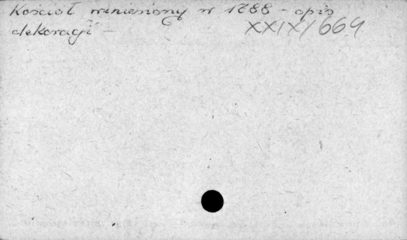 Kościół wzniesiony w 1788 - opis
dekoracji - XXIX/669